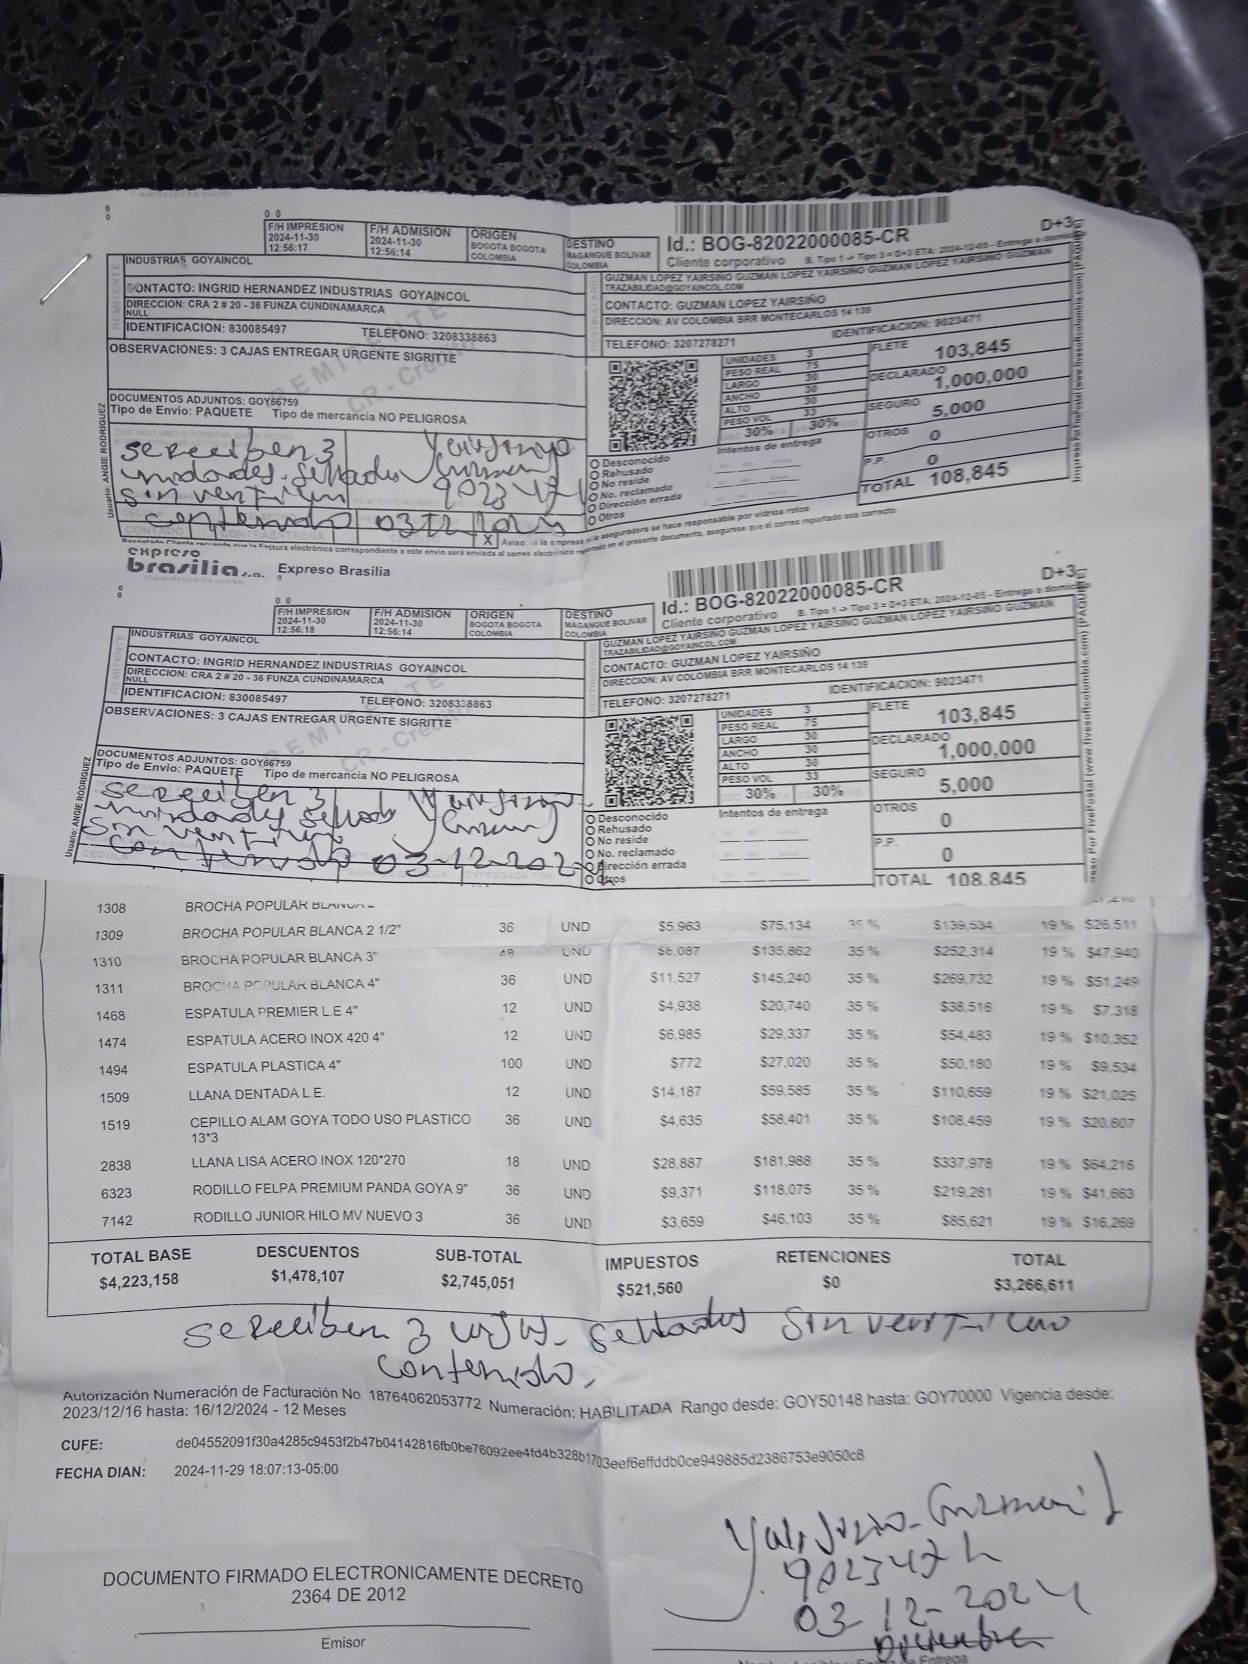 F/H IMPRESION
2024-11-30
12:56:17
F/H ADMISION
2024-11-30
12:56:14
ORIGEN
BOGOTA BOGOTA
COLOMBIA
DESTINO
MAGANGUE BOLIVAR
COLOMBIA
Id.: BOG-82022000085-CR
D+3
Cliente corporativo 8. Tipo 1 -> Tipo 3 = D+3 ETA: 2024-12-05 - Entrega a domicilio
REMITENTE
INDUSTRIAS GOYAINCOL
CONTACTO: INGRID HERNANDEZ INDUSTRIAS GOYAINCOL
DIRECCION: CRA 2 # 20 - 36 FUNZA CUNDINAMARCA
NULL
IDENTIFICACION: 830085497 TELEFONO: 3208338863
OBSERVACIONES: 3 CAJAS ENTREGAR URGENTE SIGRITTE
REMITENTE
CR - Credito
DOCUMENTOS ADJUNTOS: GOY66759
Tipo de Envio: PAQUETE Tipo de mercancia NO PELIGROSA
Usuario: ANGIE RODRIGUEZ
GUZMAN LOPEZ YAIRSIÑO GUZMAN LOPEZ YAIRSIÑO GUZMAN LOPEZ YAIRSIÑO GUZMAN
TRAZABILIDAD@GOYAINCOL.COM
CONTACTO: GUZMAN LOPEZ YAIRSIÑO
DIRECCION: AV COLOMBIA BRR MONTECARLOS 14 139
TELEFONO: 3207278271 IDENTIFICACION: 9023471
UNIDADES 3
PESO REAL 75
LARGO 30
ANCHO 30
ALTO 30
PESO VOL 33
30% 30%
Intentos de entrega
FLETE 103,845
DECLARADO 1,000,000
SEGURO 5,000
OTROS 0
P.P. 0
TOTAL 108,845
Desconocido
Rehusado
No reside
No. reclamado
Dirección errada
Otros
se reciben 3
unidades sellados
sin verificar
contenido
9023471
03 12 2024
expreso
brasilia s.a. Expreso Brasilia
F/H IMPRESION
2024-11-30
12:56:18
F/H ADMISION
2024-11-30
12:56:14
ORIGEN
BOGOTA BOGOTA
COLOMBIA
DESTINO
MAGANGUE BOLIVAR
COLOMBIA
Id.: BOG-82022000085-CR
D+3
Cliente corporativo 8. Tipo 1 -> Tipo 3 = D+3 ETA: 2024-12-05 - Entrega a domicilio
REMITENTE
INDUSTRIAS GOYAINCOL
CONTACTO: INGRID HERNANDEZ INDUSTRIAS GOYAINCOL
DIRECCION: CRA 2 # 20 - 36 FUNZA CUNDINAMARCA
NULL
IDENTIFICACION: 830085497 TELEFONO: 3208338863
OBSERVACIONES: 3 CAJAS ENTREGAR URGENTE SIGRITTE
REMITENTE
CR - Credito
DOCUMENTOS ADJUNTOS: GOY66759
Tipo de Envio: PAQUETE Tipo de mercancia NO PELIGROSA
Usuario: ANGIE RODRIGUEZ
GUZMAN LOPEZ YAIRSIÑO GUZMAN LOPEZ YAIRSIÑO GUZMAN LOPEZ YAIRSIÑO GUZMAN
TRAZABILIDAD@GOYAINCOL.COM
CONTACTO: GUZMAN LOPEZ YAIRSIÑO
DIRECCION: AV COLOMBIA BRR MONTECARLOS 14 139
TELEFONO: 3207278271 IDENTIFICACION: 9023471
UNIDADES 3
PESO REAL 75
LARGO 30
ANCHO 30
ALTO 30
PESO VOL 33
30% 30%
Intentos de entrega
FLETE 103,845
DECLARADO 1,000,000
SEGURO 5,000
OTROS 0
P.P. 0
TOTAL 108.845
Desconocido
Rehusado
No reside
No. reclamado
Dirección errada
Otros
se reciben 3
unidades sellado
sin verificar
contenido 03-12-2024
1308 BROCHA POPULAR BLANCA 2"
1309 BROCHA POPULAR BLANCA 2 1/2" 36 UND $5,963 $75,134 35 % $139,534 19 % $26,511
1310 BROCHA POPULAR BLANCA 3" 48 UND $8,087 $135,862 35 % $252,314 19 % $47,940
1311 BROCHA POPULAR BLANCA 4" 36 UND $11,527 $145,240 35 % $269,732 19 % $51,249
1468 ESPATULA PREMIER L.E 4" 12 UND $4,938 $20,740 35 % $38,516 19 % $7,318
1474 ESPATULA ACERO INOX 420 4" 12 UND $6,985 $29,337 35 % $54,483 19 % $10,352
1494 ESPATULA PLASTICA 4" 100 UND $772 $27,020 35 % $50,180 19 % $9,534
1509 LLANA DENTADA L.E. 12 UND $14,187 $59,585 35 % $110,659 19 % $21,025
1519 CEPILLO ALAM GOYA TODO USO PLASTICO 36 UND $4,635 $58,401 35 % $108,459 19 % $20,607
13*3
2838 LLANA LISA ACERO INOX 120*270 18 UND $28,887 $181,988 35 % $337,978 19 % $64,216
6323 RODILLO FELPA PREMIUM PANDA GOYA 9" 36 UND $9,371 $118,075 35 % $219,281 19 % $41,663
7142 RODILLO JUNIOR HILO MV NUEVO 3 36 UND $3,659 $46,103 35 % $85,621 19 % $16,269
TOTAL BASE DESCUENTOS SUB-TOTAL IMPUESTOS RETENCIONES TOTAL
$4,223,158 $1,478,107 $2,745,051 $521,560 $0 $3,266,611
se reciben 3 sellados sin verificar
contenido.
Autorización Numeración de Facturación No 18764062053772 Numeración: HABILITADA Rango desde: GOY50148 hasta: GOY70000 Vigencia desde:
2023/12/16 hasta: 16/12/2024 - 12 Meses
CUFE: de04552091f30a4285c9453f2b47b04142816fb0be76092ee4fd4b328b1703eef6effddb0ce949885d2386753e9050c8
FECHA DIAN: 2024-11-29 18:07:13-05:00
Guzman
9023471
03-12-2024
Diciembre
DOCUMENTO FIRMADO ELECTRONICAMENTE DECRETO
2364 DE 2012
Emisor